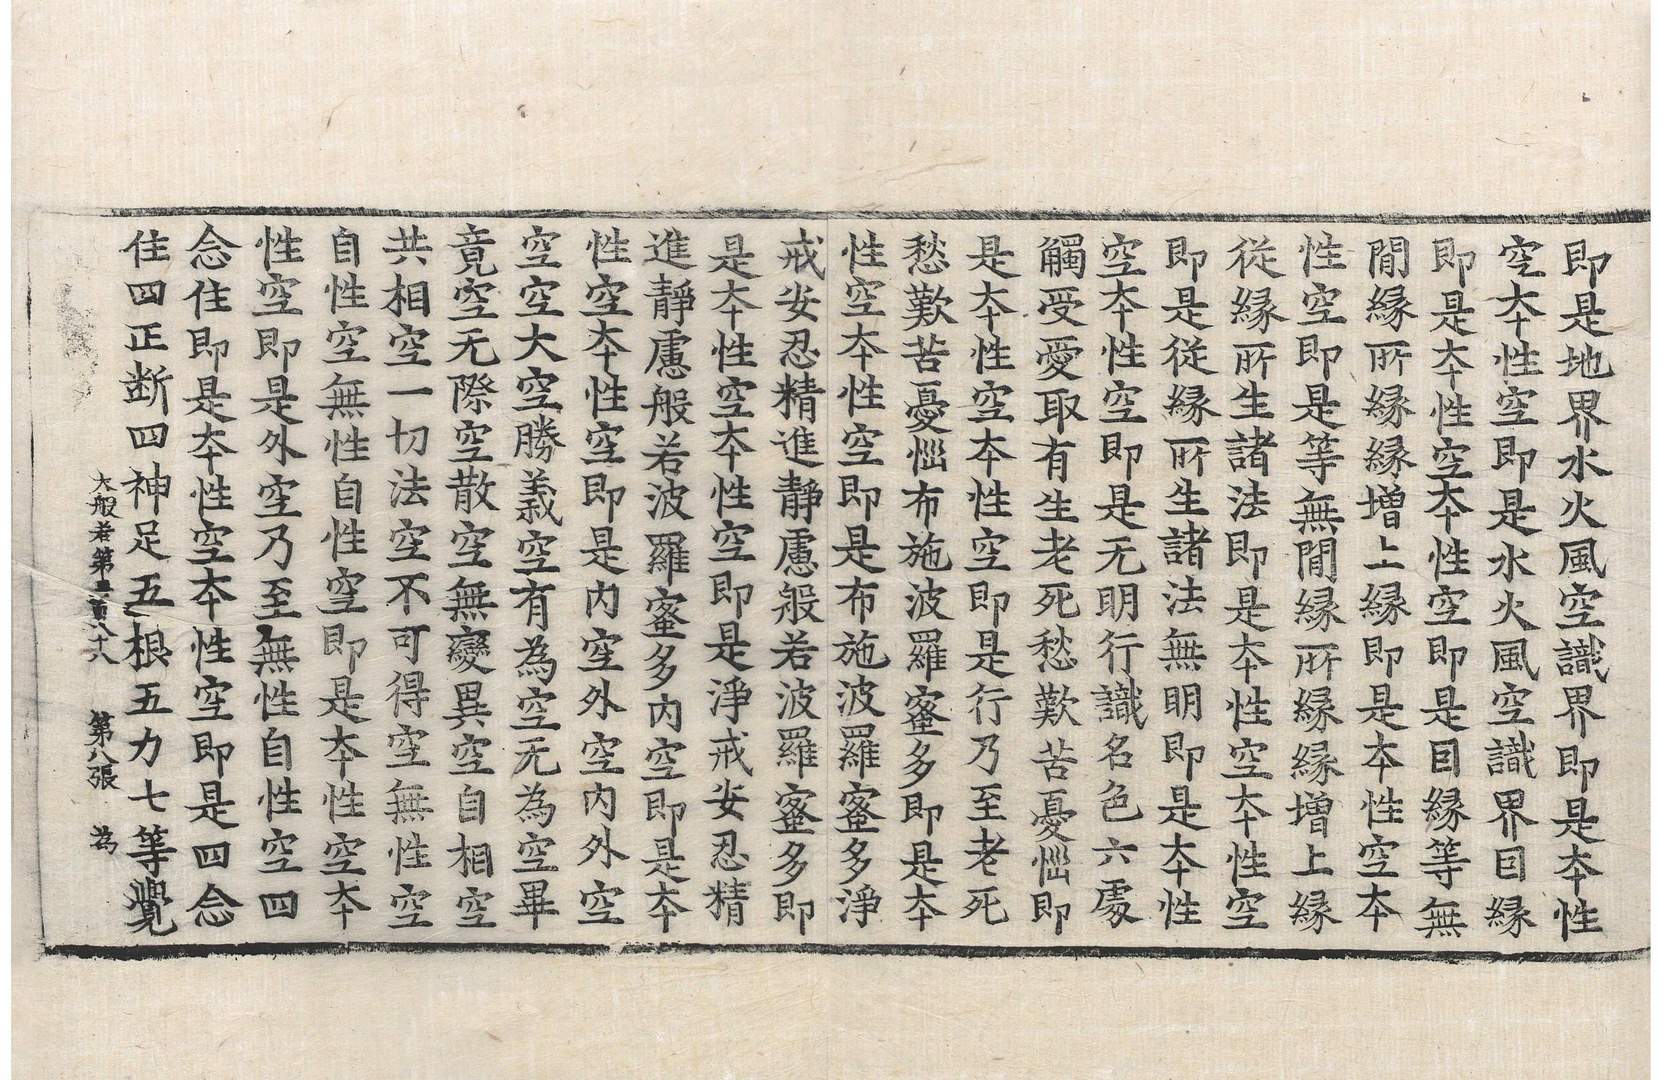 即是地界水火風空識界即是夲性
空夲性空即是水火風空識界囙縁
即是夲性空夲性空即是囙縁等無
閒縁所縁縁增上縁即是夲性空夲
性空即是等無閒縁所縁縁增上縁
從縁所生諸法即是夲性空夲性空
即是從縁所生諸法無明即是夲性
空夲性空即是无明行識名色六處
觸受愛取有生老死愁歎苦憂惱即
是夲性空夲性空即是行乃至老死
愁歎苦憂惱布施波羅蜜多即是夲
性空夲性空即是布施波羅蜜多淨
戒安忍精進靜慮般若波羅蜜多即
是夲性空夲性空即是淨戒安忍精
進靜慮般若波羅蜜多內空即是夲
性空夲性空即是內空外空內外空
空空大空勝義空有為空无為空畢
竟空无際空散空無變異空自相空
共相空一切法空不可得空無性空
自性空無性自性空即是夲性空夲
性空即是外空乃至無性自性空四
念住即是夲性空夲性空即是四念
住四正断四神足五根五力七等覺
大般若第三百八十八 第八張 為